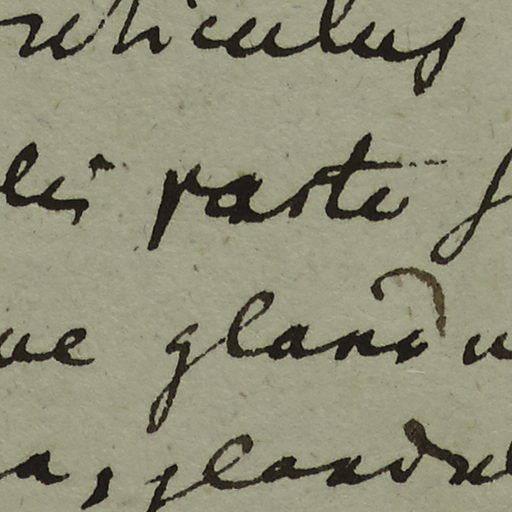 uticulus
lis parte
ue glandu
a, glandul